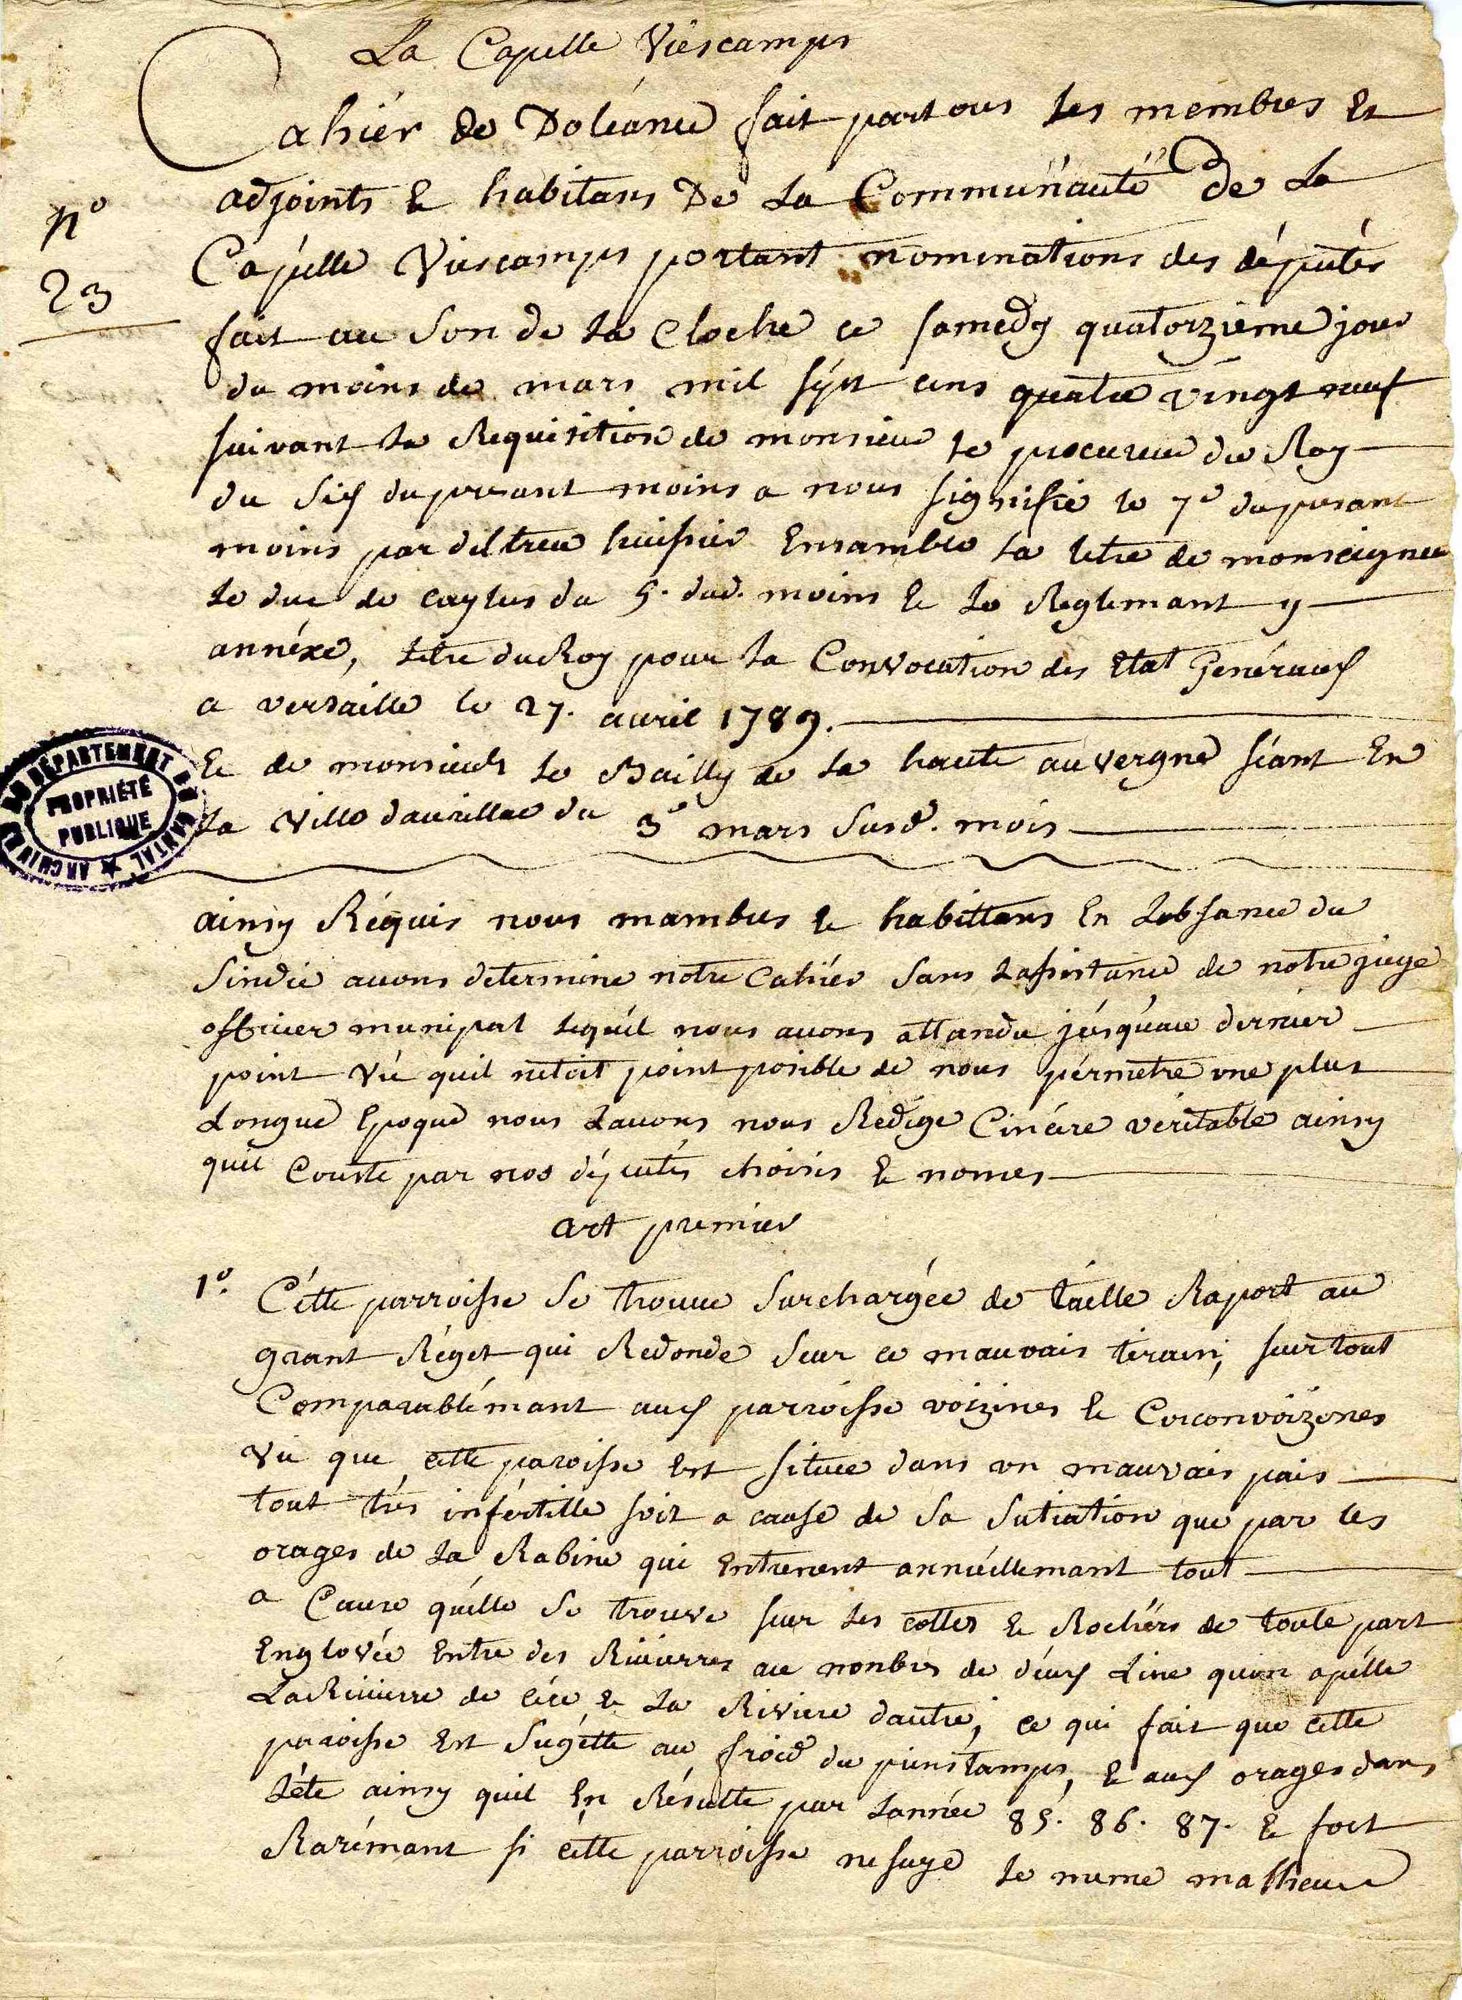 La Capelle Viescamps
Cahiér de Doléance fait partous les membres Et
adjoints & habitans De La Communauté de La
n°
Capélle Viescamps portant nominations des députés
23
fait au Son de La Cloche ce samedy quatorzieme jour
du moins de mars mil sept cens quatre vingt neuf
suivant La Requisition de monsieur le procureur du Roy
du Six du presant moins a nous signifié le 7e du presant
moins par deltreu huissier Ensamble La letre de monseigneur
Le duc de caylus du 5. dud. moins & Le Reglemant y
annéxé, Letre du Roy pour La Convocation des Etat Généraux
a versaille le 27. avril 1789.
ARCHIVES DU DÉPARTEMENT DU CANTAL
PROPRIÉTÉ
PUBLIQUE
Et de monsieur Le Bailly de La haute auvergne séant En
La Ville daurillac du 3e mars Susd. mois
ainsy Réquis nous mambres & habittans En Labsance du
Sindic avons determine notre Cahiér Sans Lassistance de notre juge
officier municipal Lequél nous avons attandu jusquau dernier
point Vû quil nétoit point posible de nous pérmetre une plus
Longue Epoque nous Lavons nous Redigé Cincére véritable ainsy
quil Conste par nos députés choisis & nomes
art premier
1°. Cétte parroisse Se trouve Surchargée de taélle Raport au
grant Réget qui Redonde Seur ce mauvais térain, sur tout
Comparablémant aux parroisse voizines & Circonvoizines
Vû que cétte paroisse Est située dans un mauvais pais
tout trés infértille soit a cause de Sa Sutiation que par les
orages de La Rabine qui Entrenent annuéllemant tout
a Cause quélle Se trouve sur Les cottes & Rochérs de toute part
Englovée Entre des Riviérres au nonbre de déux Lune quon apélle
La Riviere de Cére & La Riviere dautre, ce qui fait que cétte
paroisse Est Sugétte au froid du prinstamps, & aux orages dans
Léte ainsy quil En Résulte par Lannée 85. 86. 87. & fort
Rarémant si cétte parroisse nesuye Le meme malheur